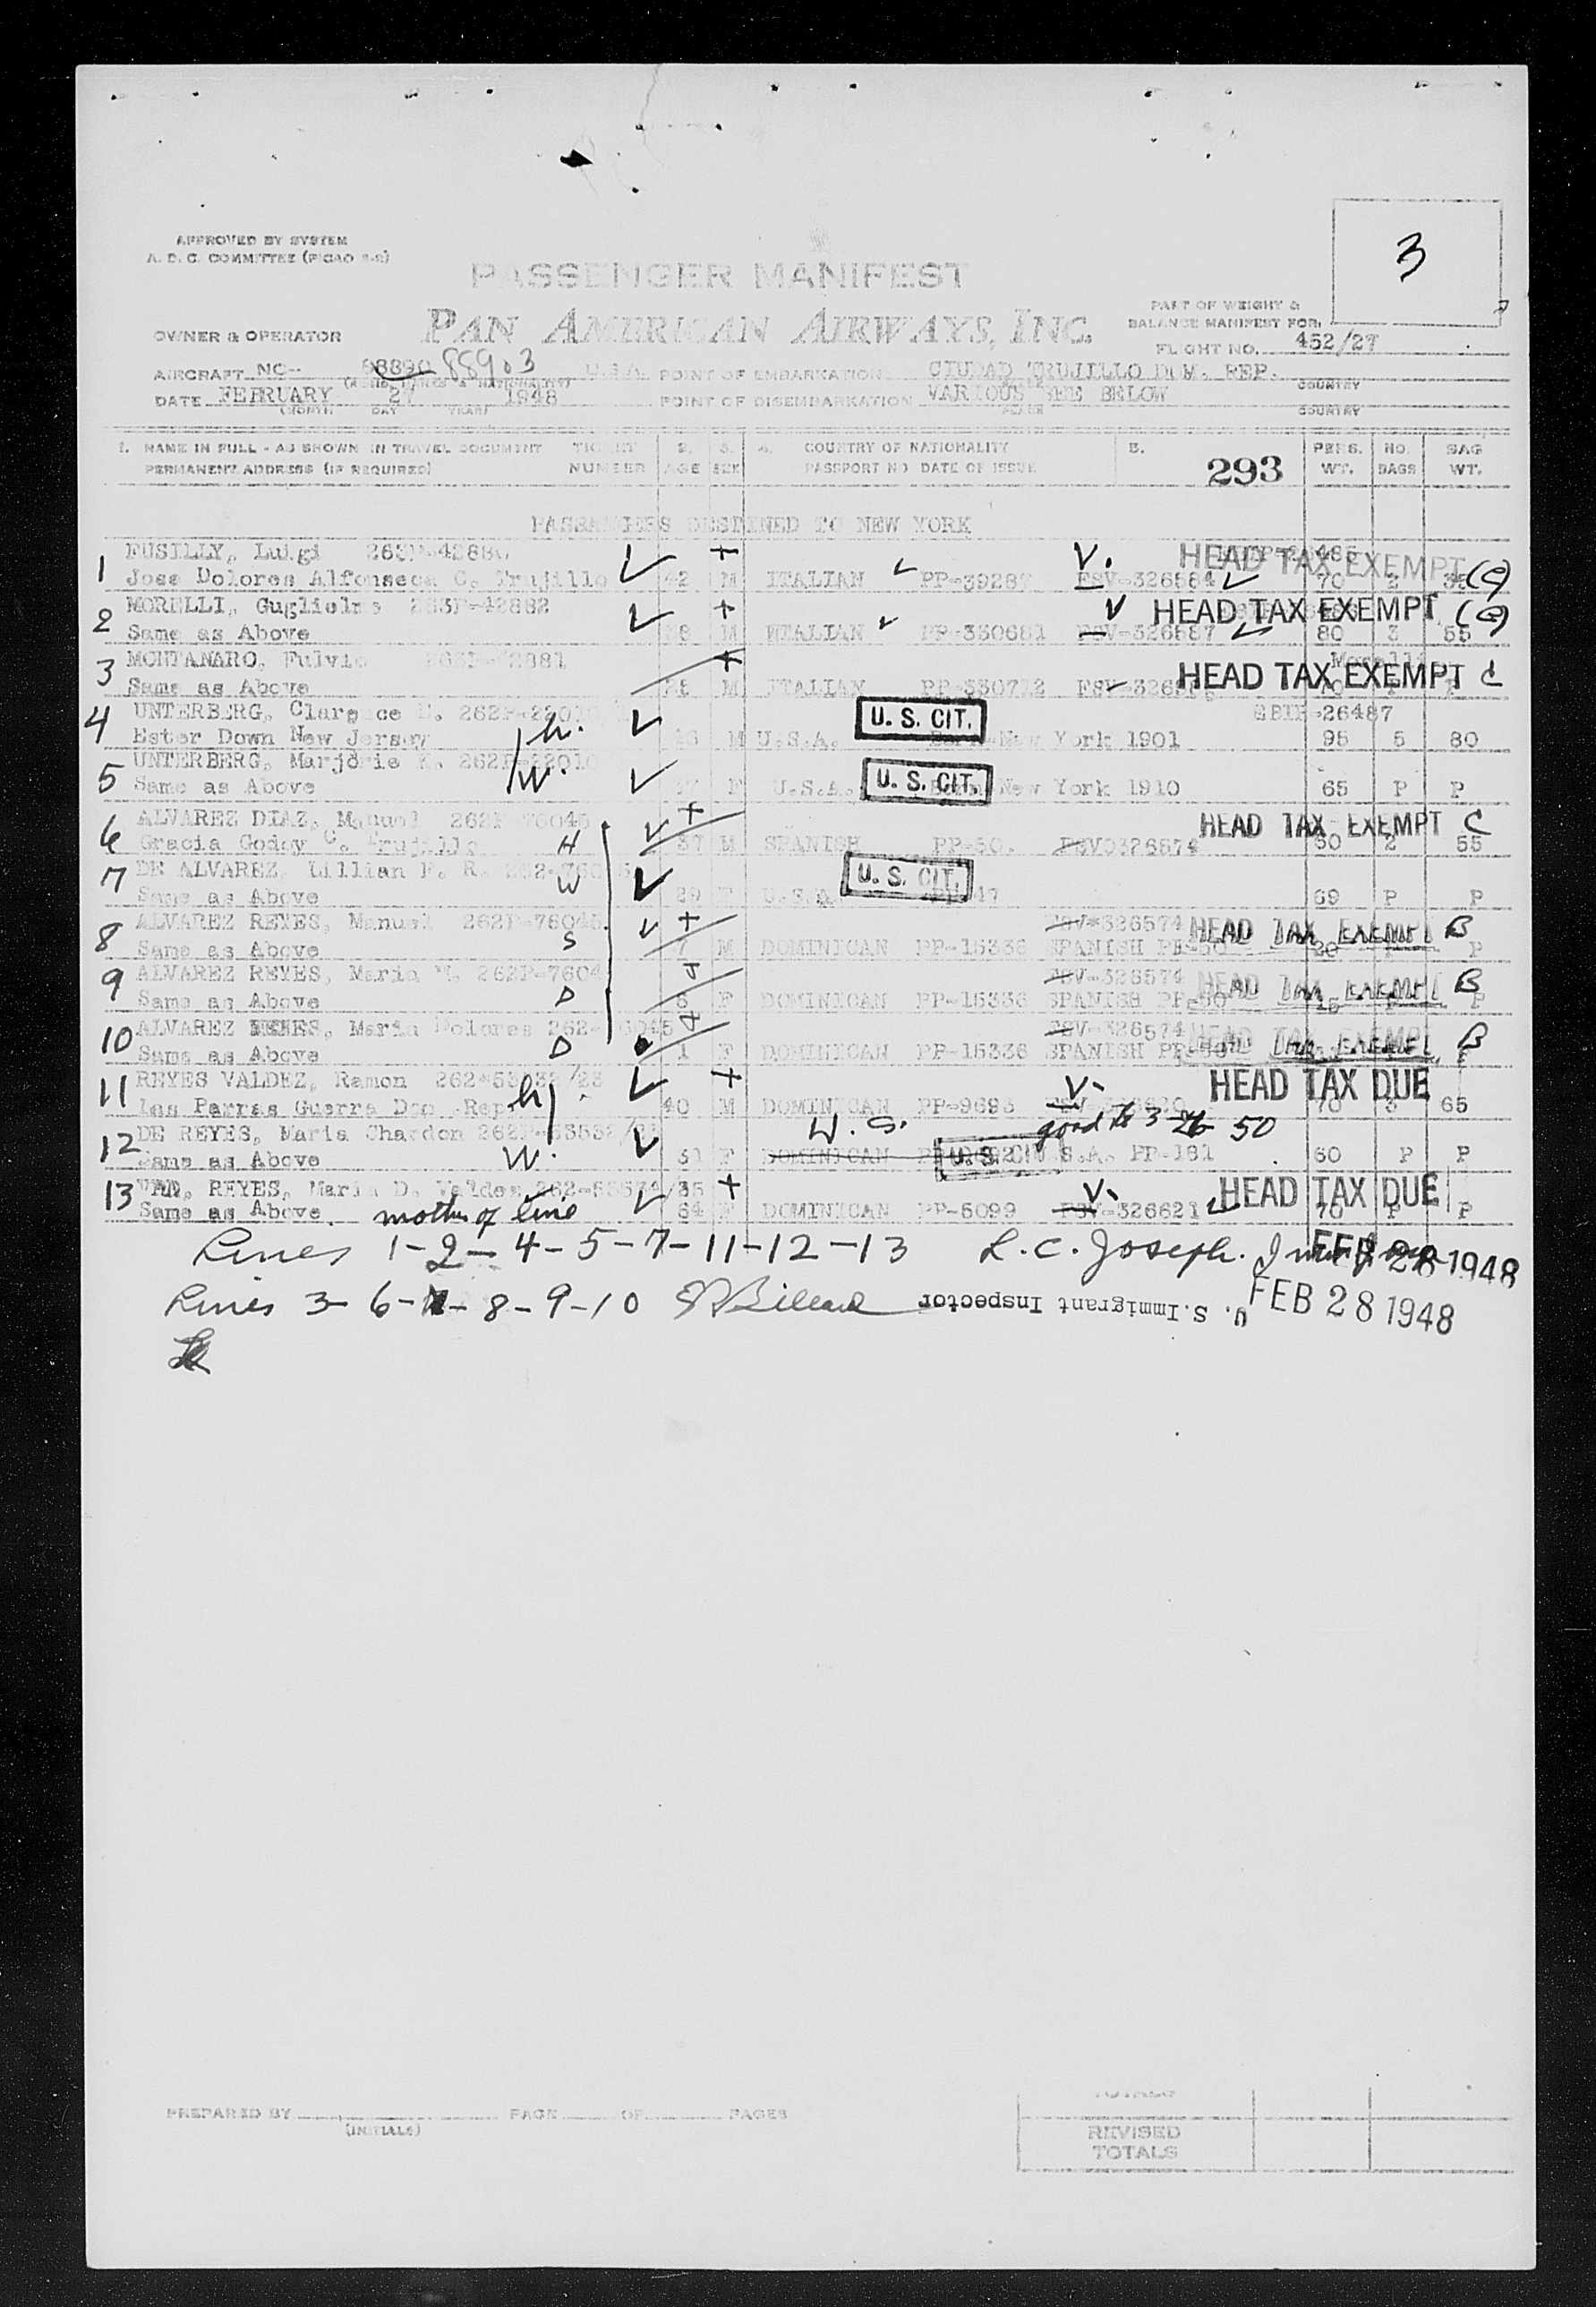 3
APPROVED BY SYSTEM
A. D. C. COMMITTEE (PICAO
PASSENGER MANIFEST
PART OF WEIGHT &
BALANCE MANIFEST FOR
OWNER & OPERATOR
PAN AMERICAN AIRWAYS, INC.
FLIGHT NO. 452/27
AIRCRAFT NC-- 88890 88903 U.S.A. POINT OF EMBARKATION CIUDAD TRUJILLO DOM. REP.
COUNTRY
DATE FEBRUARY 27 1948 POINT OF DISEMBARKATION VARIOUS SEE BELOW
(MONTH DAY YEAR) PLACE COUNTRY
1. NAME IN FULL - AS SHOWN IN TRAVEL DOCUMENT TICKET 2. 3. 4. COUNTRY OF NATIONALITY 5. PERS. NO. BAG
PERMANENT ADDRESS (IF REQUIRED) NUMBER AGE SEX PASSPORT NO DATE OF ISSUE 293 WT. BAGS WT.
PASSENGERS DESTINED TO NEW YORK
1 FUSILLY, Luigi V. HEAD TAX EXEMPT (C)
Jose Dolores Alfonseca C. Trujillo 42 M ITALIAN PP-39287 PSV-326584 70 2
2 MORELLI, Guglielmo 263P-42882 V HEAD TAX EXEMPT (C)
Same as Above M ITALIAN PP-330681 PSV-326587 80 3 55
3 MONTANARO, Fulvio HEAD TAX EXEMPT C
Same as Above M ITALIAN PP-330712
4 UNTERBERG, Clarence h. U. S. CIT. 26487
Ester Down New Jersey M U.S.A. Born New York 1901 95 5 80
5 UNTERBERG, Marjorie W. U. S. CIT.
Same as Above F U.S.A. Born New York 1910 65 P P
6 ALVAREZ DIAZ, Manuel 262P-76045 HEAD TAX EXEMPT C
Gracia Godoy C. Trujillo H 37 M SPANISH PP-50. PSV0326574 2 55
7 DE ALVAREZ, Lillian F. R. U. S. CIT.
Same as Above W 29 F U.S.A. 69 P P
8 ALVAREZ REYES, Manuel 262P-76045 PSV*326574 HEAD TAX EXEMPT B
Same as Above S 7 M DOMINICAN PP-15336 SPANISH PP-50 P
9 ALVAREZ REYES, Maria PSV-326574 HEAD TAX EXEMPT B
Same as Above D F DOMINICAN PP-15336 SPANISH PP-50 P
10 ALVAREZ REYES, Maria Dolores PSV-326574 HEAD TAX EXEMPT B
Same as Above D 1 F DOMINICAN PP-15336 SPANISH PP-50
11 REYES VALDEZ, Ramon h V- HEAD TAX DUE
Las Parras Guerra Dom Rep. 40 M DOMINICAN PP-9693 70 3 65
12 DE REYES, Maria Chardon U.S. good to 3-26-50
Same as Above W. F DOMINICAN U. S. CIT U.S.A. PP-181 60 P P
13 REYES, Maria D. Valdez V- HEAD TAX DUE
Same as Above mother of line 64 F DOMINICAN PP-6099 PSV-326621 70 P P
Lines 1-2-4-5-7-11-12-13 L. C. Joseph. FEB 28 1948
Lines 3-6-8-9-10 U. S. Immigrant Inspector FEB 28 1948
TOTALS
PREPARED BY PAGE OF PAGES
(INITIALS)
REVISED
TOTALS